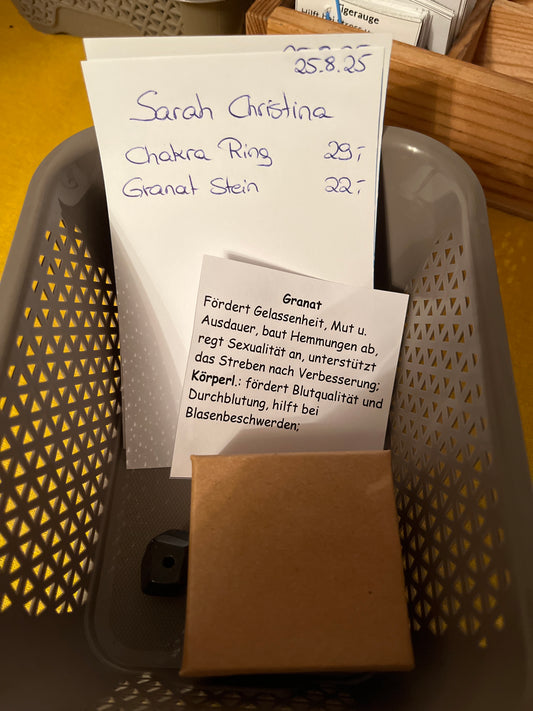 gerauge
25.8.25
Sarah Christina
Chakra Ring 29,-
Granat Stein 22,-
Granat
Fördert Gelassenheit, Mut u.
Ausdauer, baut Hemmungen ab,
regt Sexualität an, unterstützt
das Streben nach Verbesserung;
Körperl.: fördert Blutqualität und
Durchblutung, hilft bei
Blasenbeschwerden;